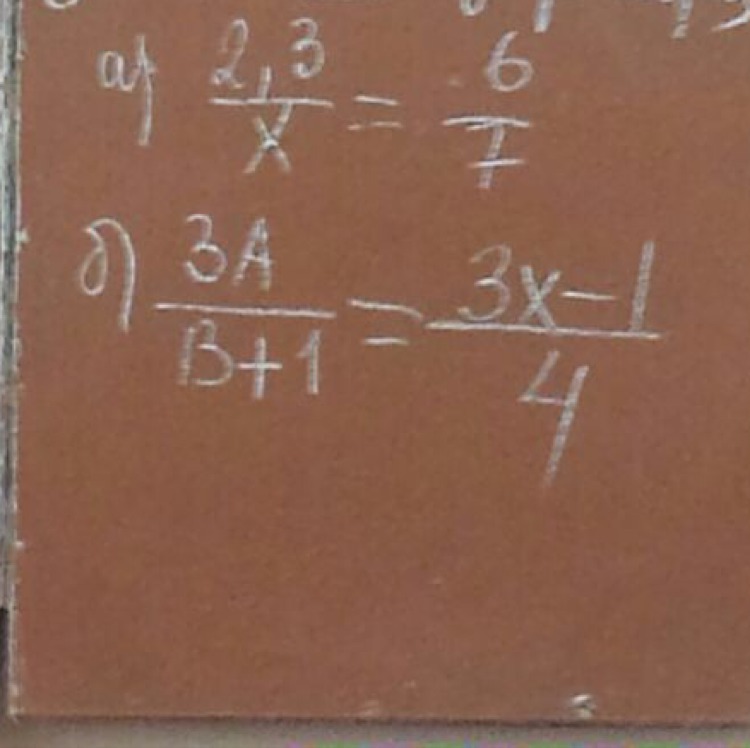 а) 2,3/x = 6/7
б) 3A/B+1 = 3x-1/4